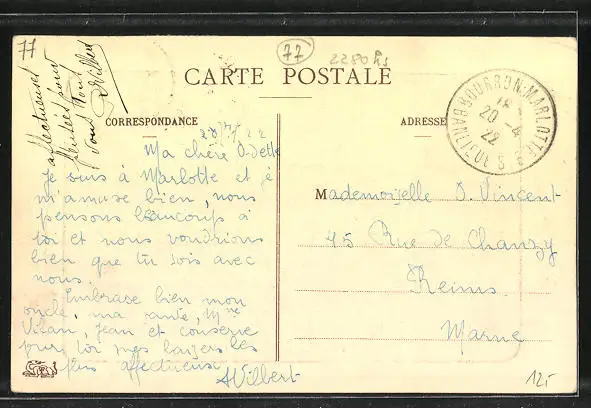 77
77
2280 Rs
CARTE POSTALE
CORRESPONDANCE
ADRESSE
BOURRON-MARLOTTE
20 -4
22
S. & M.
affectueuses
pensées pour
vous tous
Vilbert
20/4/22
Ma chère Odette
Je suis à Marlotte et je
m'amuse bien, nous
pensons beaucoup à
toi et nous voudrions
bien que tu sois avec
nous.
Embrasse bien mon
oncle, ma tante, Mme
Jean et conserve
pour toi mes baisers les
plus affectueux
AVilbert
Mademoiselle O. Vincent
45 Rue de Chanzy
Reims
Marne
125